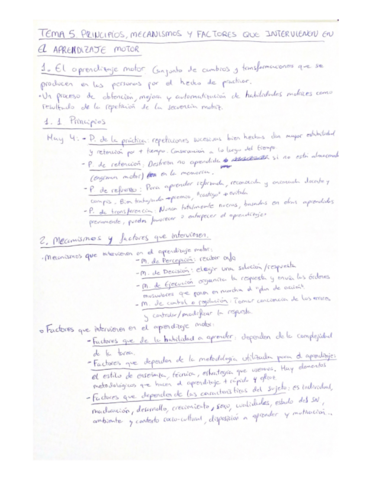 TEMA 5 PRINCIPIOS, MECANISMOS Y FACTORES QUE INTERVIENEN EN
EL APRENDIZAJE MOTOR
1. El aprendizaje motor Conjunto de cambios y transformaciones que se
producen en las personas por el hecho de practicar.
- Un proceso de obtención, mejora y automatización de habilidades motrices como
resultado de la repetición de la secuencia motora.
1.1 Principios
Hay 4. - P. de la práctica: repeticiones sucesivas bien hechas dan mayor estabilidad
y retención por + tiempo. a lo largo del tiempo
- P. de retención: no aprendido si no está almacenado
(engrama motor) en la memoria.
- P. de refuerzo: Para aprender
- P. de transferencia: Nunca totalmente nuevo, basados en otros aprendidos
previamente, pueden favorecer o entorpecer el aprendizaje
2. Mecanismos y factores que intervienen
- Mecanismos que intervienen en el aprendizaje motor:
- M. de Percepción: recibir info
- M. de Decisión: elegir una solución/respuesta
- M. de Ejecución organiza la respuesta y manda las órdenes
musculares que ponen en marcha el "plan de acción".
- M. de control o regulación: Tomar conciencia de los errores
y controlar/modificar la respuesta
* Factores que intervienen en el aprendizaje motor:
- Factores que de la habilidad a aprender: dependen de la complejidad
de la tarea.
- Factores que dependen de la metodología utilizada para el aprendizaje:
el estilo de enseñanza, técnica, estrategia que usemos. Hay elementos
metodológicos que hacen el aprendizaje + rápido y eficaz
- Factores que dependen de las características del sujeto: es individual,
maduración, desarrollo, crecimiento, cualidades, estado del SN,
ambiente y contexto sociocultural, disposición a aprender y motivación...